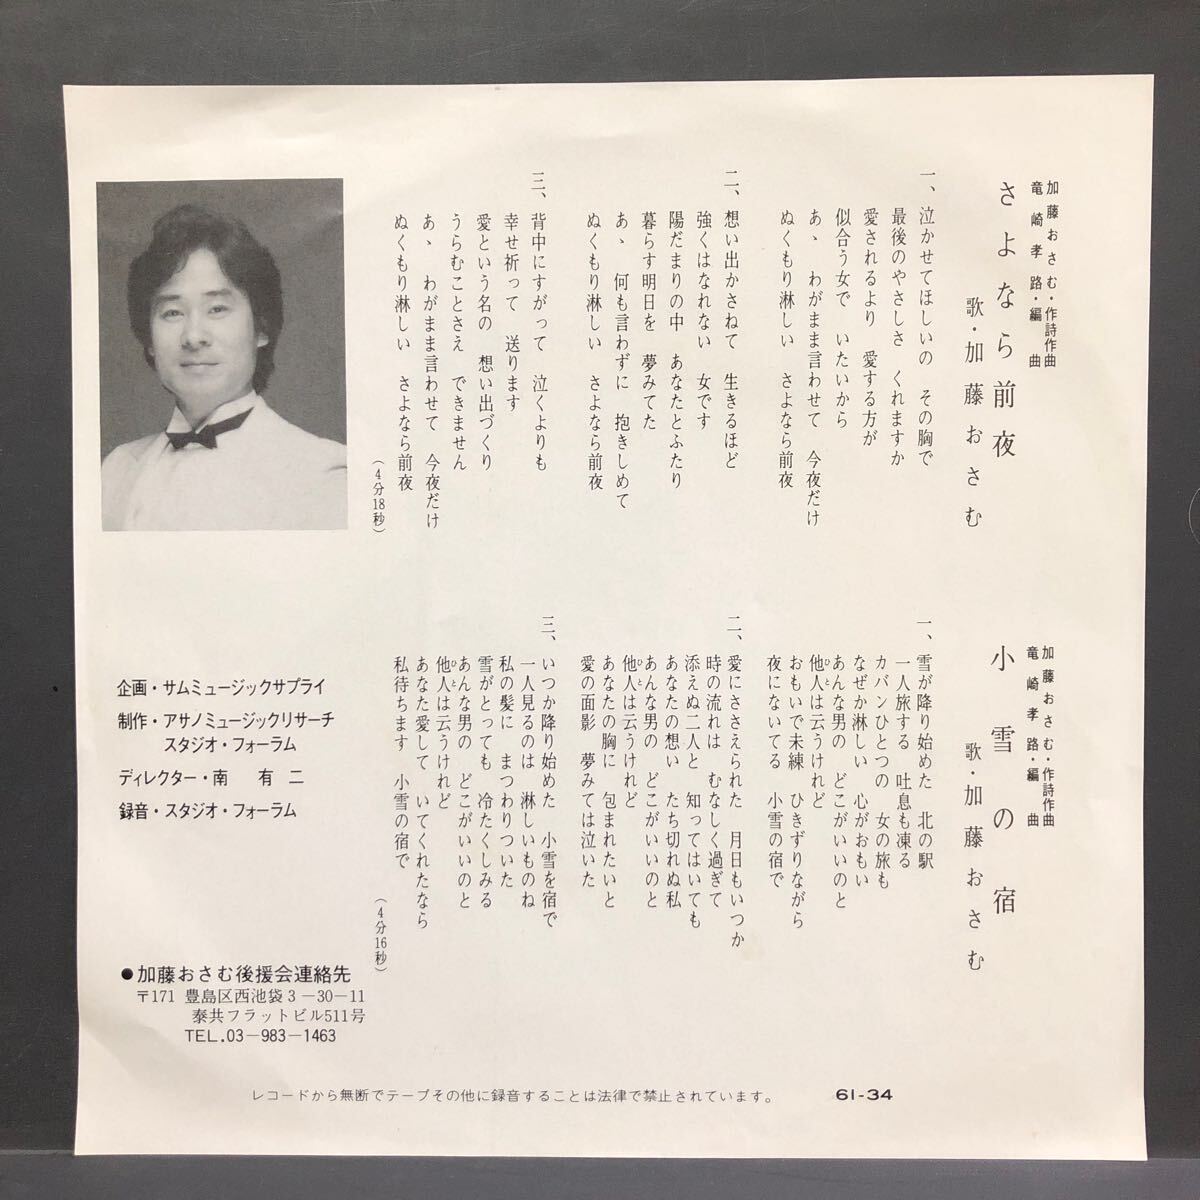 加藤おさむ・作詩作曲
竜崎孝路・編曲
さよなら前夜
歌・加藤おさむ
一、泣かせてほしいの その胸で
最後のやさしさ くれますか
愛されるより 愛する方が
似合う女で いたいから
あゝ わがまま言わせて 今夜だけ
ぬくもり淋しい さよなら前夜
二、想い出かさねて 生きるほど
強くはなれない 女です
陽だまりの中 あなたとふたり
暮らす明日を 夢みてた
あゝ 何も言わずに 抱きしめて
ぬくもり淋しい さよなら前夜
三、背中にすがって 泣くよりも
幸せ祈って 送ります
愛という名の 想い出づくり
うらむことさえ できません
あゝ わがまま言わせて 今夜だけ
ぬくもり淋しい さよなら前夜
(4分18秒)
加藤おさむ・作詩作曲
竜崎孝路・編曲
小雪の宿
歌・加藤おさむ
一、雪が降り始めた 北の駅
一人旅する 吐息も凍る
カバンひとつの 女の旅も
なぜか淋しい 心がおもい
あんな男の どこがいいのと
他人は云うけれど
ひと
おもいで未練 ひきずりながら
夜にないてる 小雪の宿で
二、愛にささえられた 月日もいつか
時の流れは むなしく過ぎて
添えぬ二人と 知ってはいても
あなたの想い たち切れぬ私
あんな男の どこがいいのと
他人は云うけれど
ひと
あなたの胸に 包まれたいと
愛の面影 夢みては泣いた
三、いつか降り始めた 小雪を宿で
一人見るのは 淋しいものね
私の髪に まつわりついた
雪がとっても 冷たくしみる
あんな男の どこがいいのと
他人は云うけれど
ひと
あなた愛して いてくれたなら
私待ちます 小雪の宿で
(4分16秒)
企画・サムミュージックサプライ
制作・アサノミュージックリサーチ
スタジオ・フォーラム
ディレクター・南 有二
録音・スタジオ・フォーラム
●加藤おさむ後援会連絡先
〒171 豊島区西池袋3-30-11
泰共フラットビル511号
TEL.03-983-1463
レコードから無断でテープその他に録音することは法律で禁止されています。
61-34